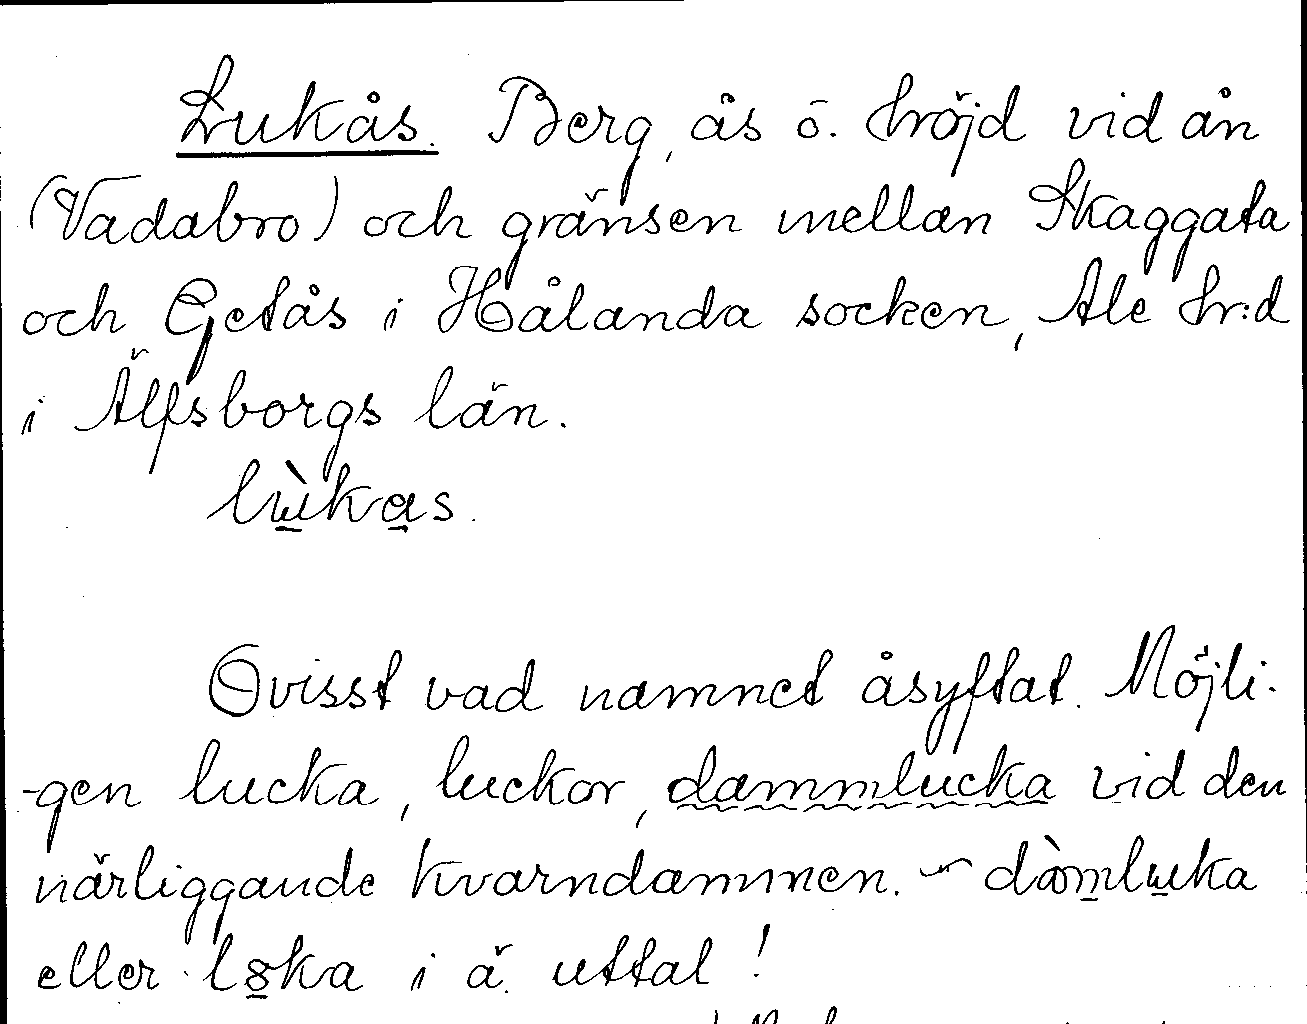 Lukås. Berg, ås ö. höjd vid ån
(Vadabro) och gränsen mellan Skaggata
och Getås i Hålanda socken, Ale hr:d
i Älfsborgs län.
lùkas.
Ovisst vad namnet åsyftat. Möjli-
-gen lucka, luckor, dammlucka vid den
närliggande kvarndammen. dàmluka
eller l8ka i ä. uttal!